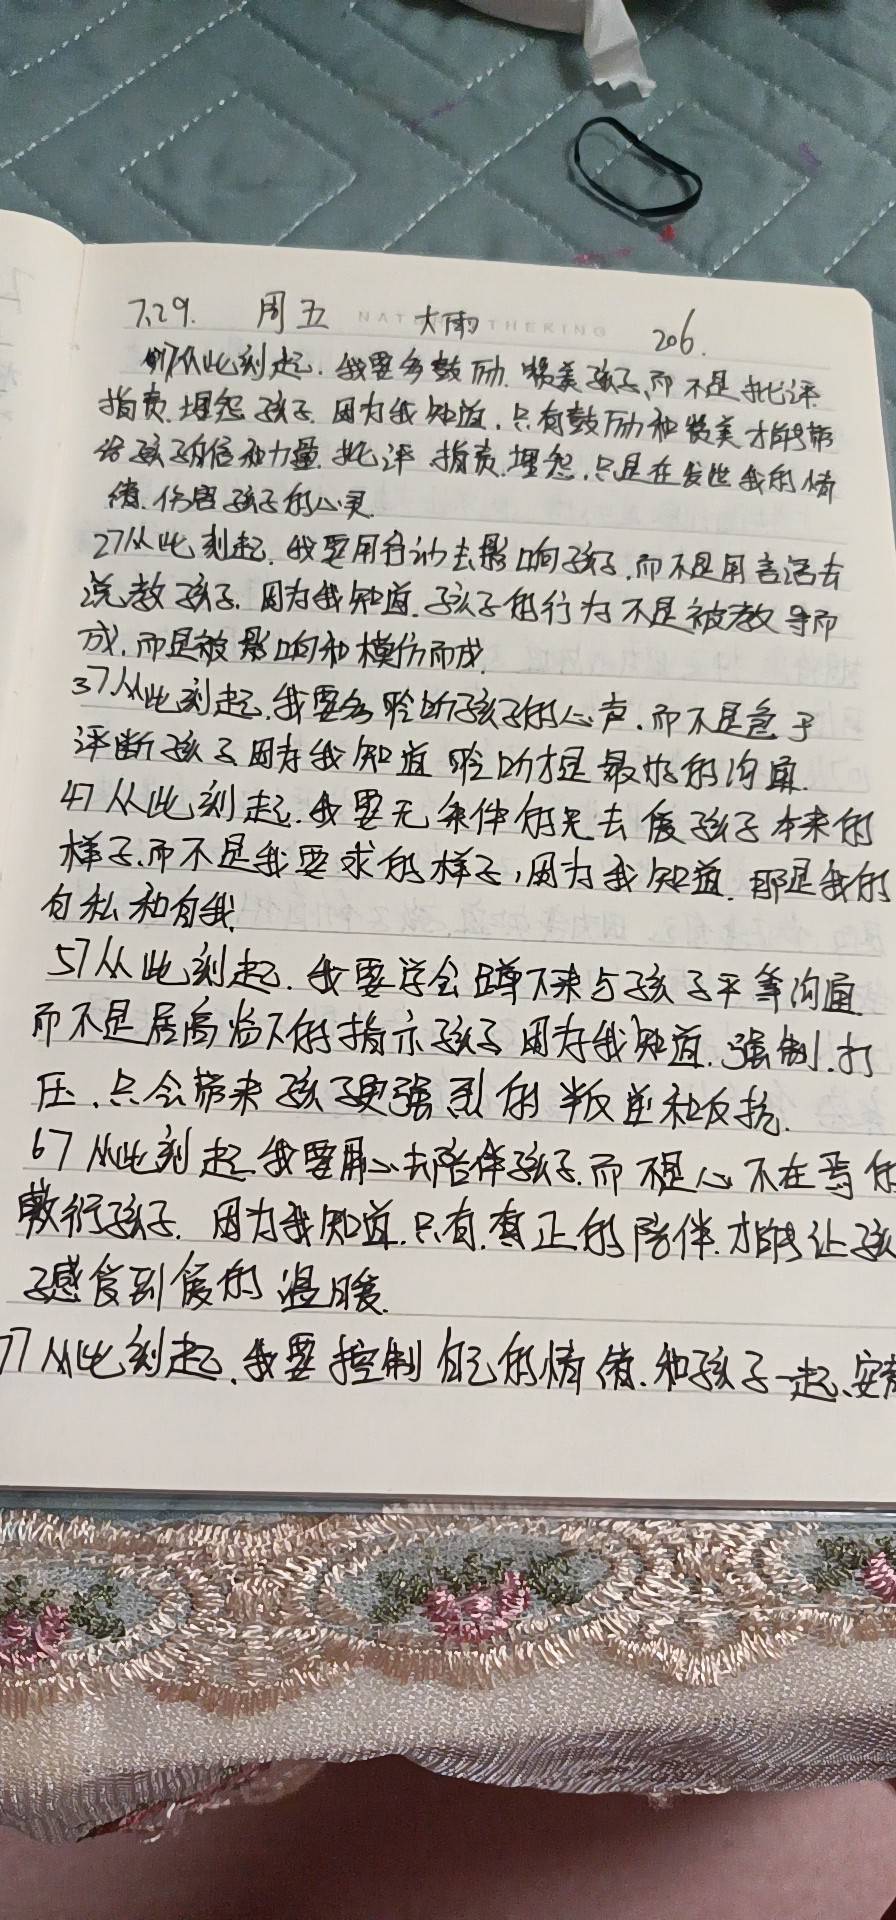 7.29. 周五 大雨 206.
1>从此刻起.我要多鼓励.赞美孩子,而不是批评
指责.埋怨孩子.因为我知道.只有鼓励和赞美才能够带
给孩子自信和力量.批评.指责.埋怨.只是在发泄我的情
绪.伤害孩子的心灵.
2>从此刻起.我要用行动去影响孩子.而不是用言语去
说教孩子.因为我知道.孩子的行为不是被教导而
成.而是被影响和模仿而成.
3>从此刻起.我要多聆听孩子的心声.而不是急于
评断孩子.因为我知道聆听才是最好的沟通.
4>从此刻起.我要无条件的先去爱孩子本来的
样子.而不是我要求的样子,因为我知道.那是我的
自私和自我.
5>从此刻起.我要学会蹲下来与孩子平等沟通
而不是居高临下的指示孩子因为我知道.强制.打
压.只会带来孩子更强烈的叛逆和反抗.
6>从此刻起.我要用心去陪伴孩子.而不是心不在焉的
敷衍孩子.因为我知道.只有.真正的陪伴.才能够让孩
子感食到爱的温暖.
7>从此刻起.我要控制自己的情绪.和孩子一起、安静